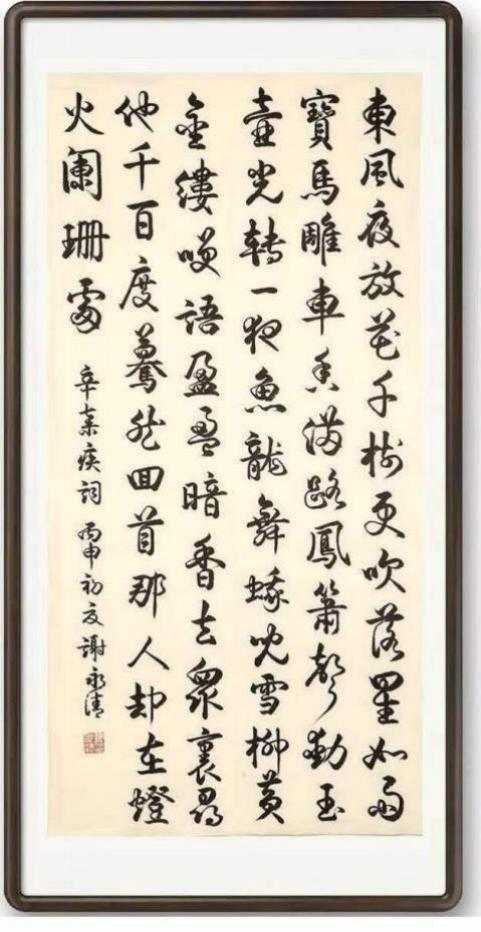 東風夜放花千樹更吹落星如雨
寶馬雕車香滿路鳳簫聲動玉
壺光轉一夜魚龍舞蛾兒雪柳黃
金縷笑語盈盈暗香去衆裏尋
他千百度驀然回首那人却在燈
火闌珊處
辛棄疾詞 丙申初夏 謝永清